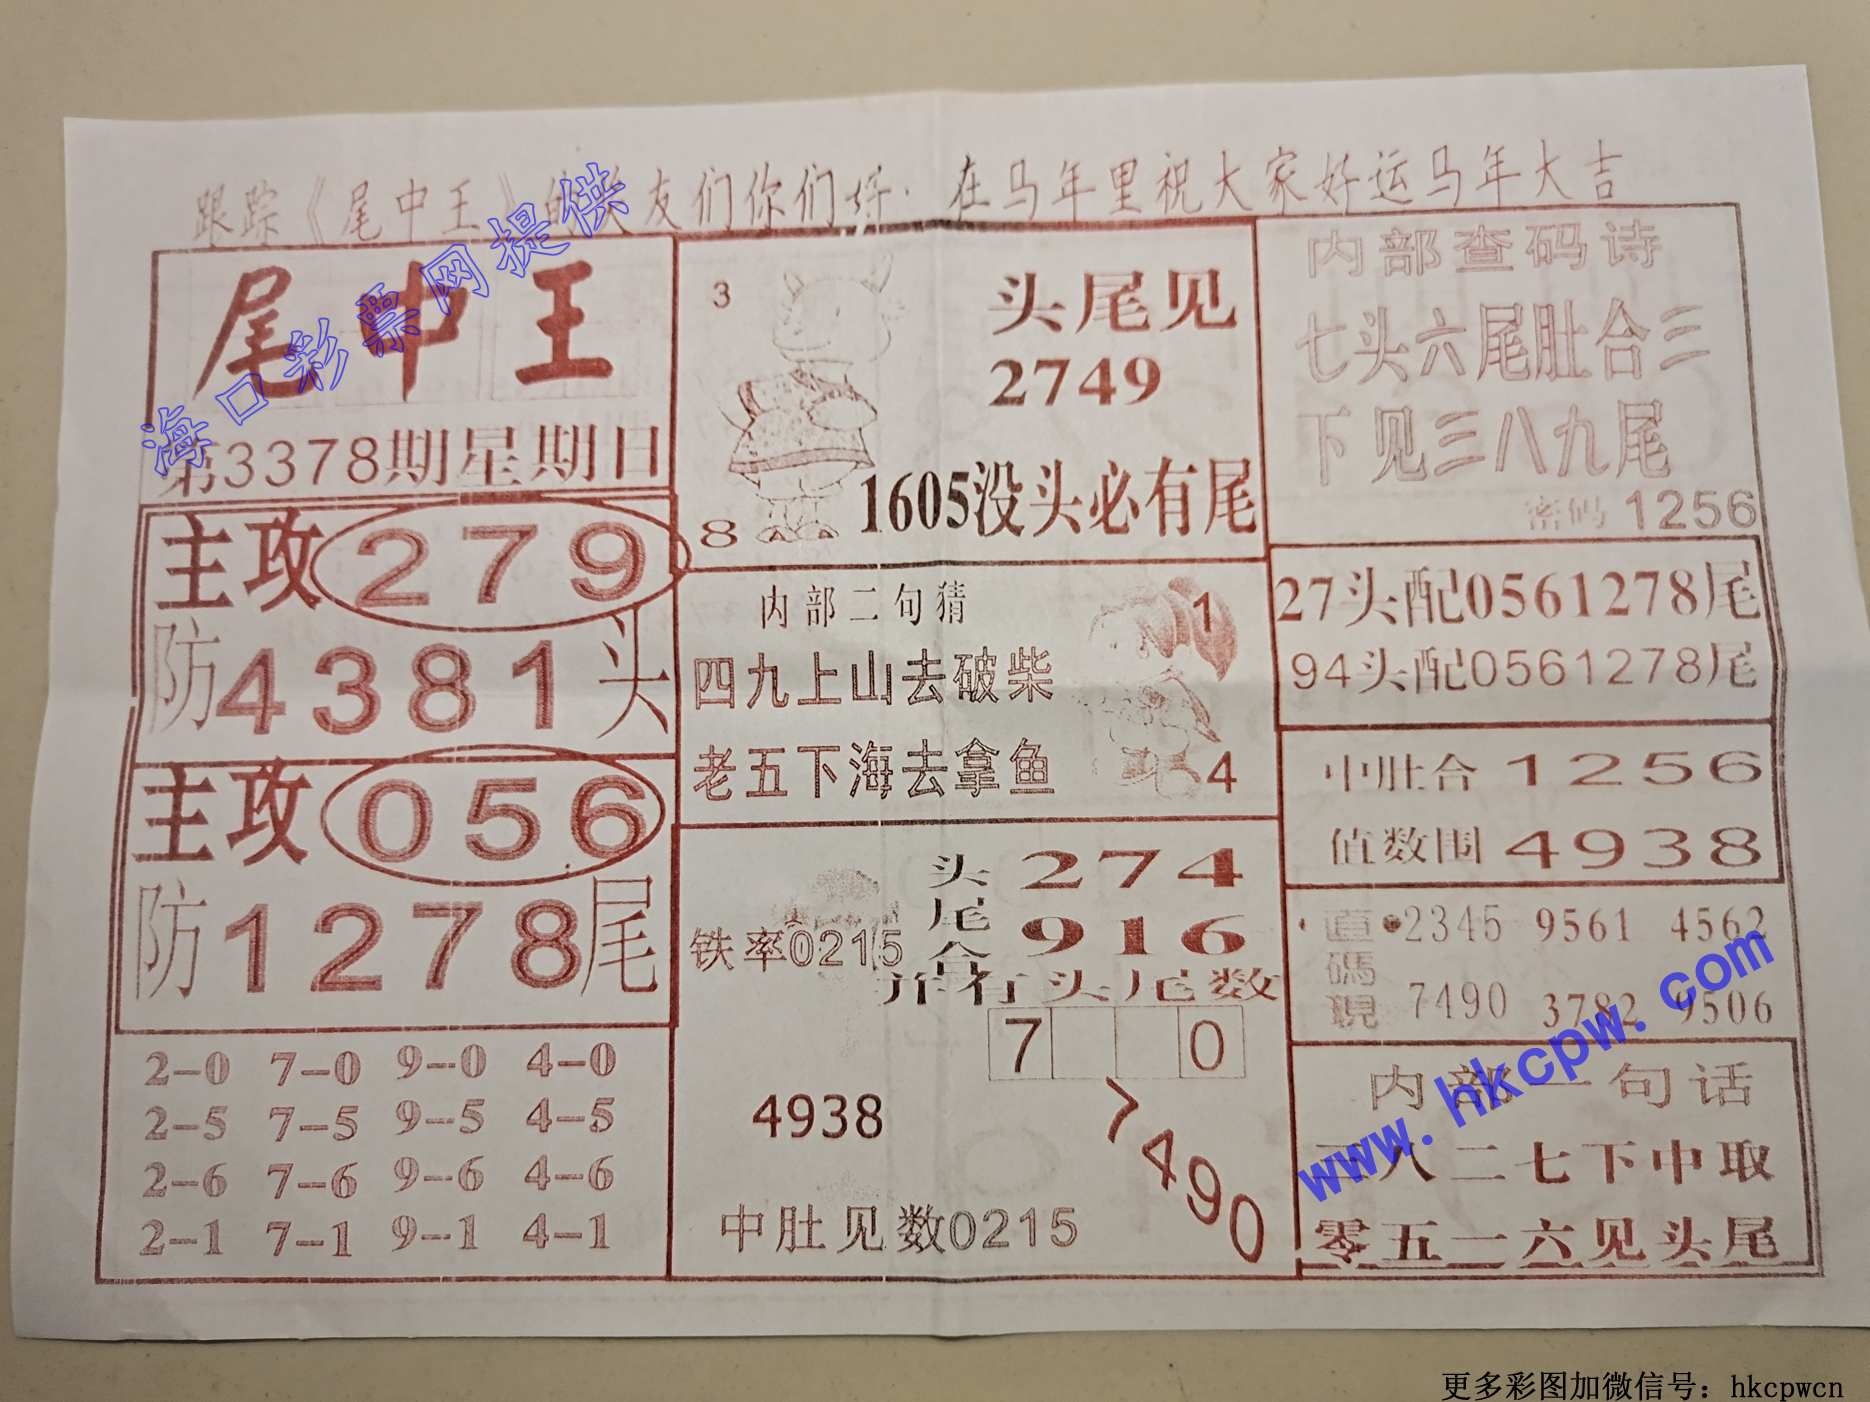 跟踪《尾中王》的友们你们好·在马年里祝大家好运马年大吉
尾中王
第3378期星期日
主攻279
防4381头
主攻056
防1278尾
2-0 7-0 9-0 4-0
2-5 7-5 9-5 4-5
2-6 7-6 9-6 4-6
2-1 7-1 9-1 4-1
3
头尾见
2749
8
1605没头必有尾
内部二句猜
1
四九上山去破柴
老五下海去拿鱼
4
头尾合
274
916
铁率0215
并有头尾数
7 0
4938
7490
中肚见数0215
内部查码诗
七头六尾肚合三
下见三八九尾
密码 1256
27头配0561278尾
94头配0561278尾
中肚合 1256
值数围 4938
直碼現
2345 9561 4562
7490 3782 9506
内部一句话
八二七下中取
零五一六见头尾
海口彩票网提供
www.hkcpw.com
更多彩图加微信号：hkcpwcn